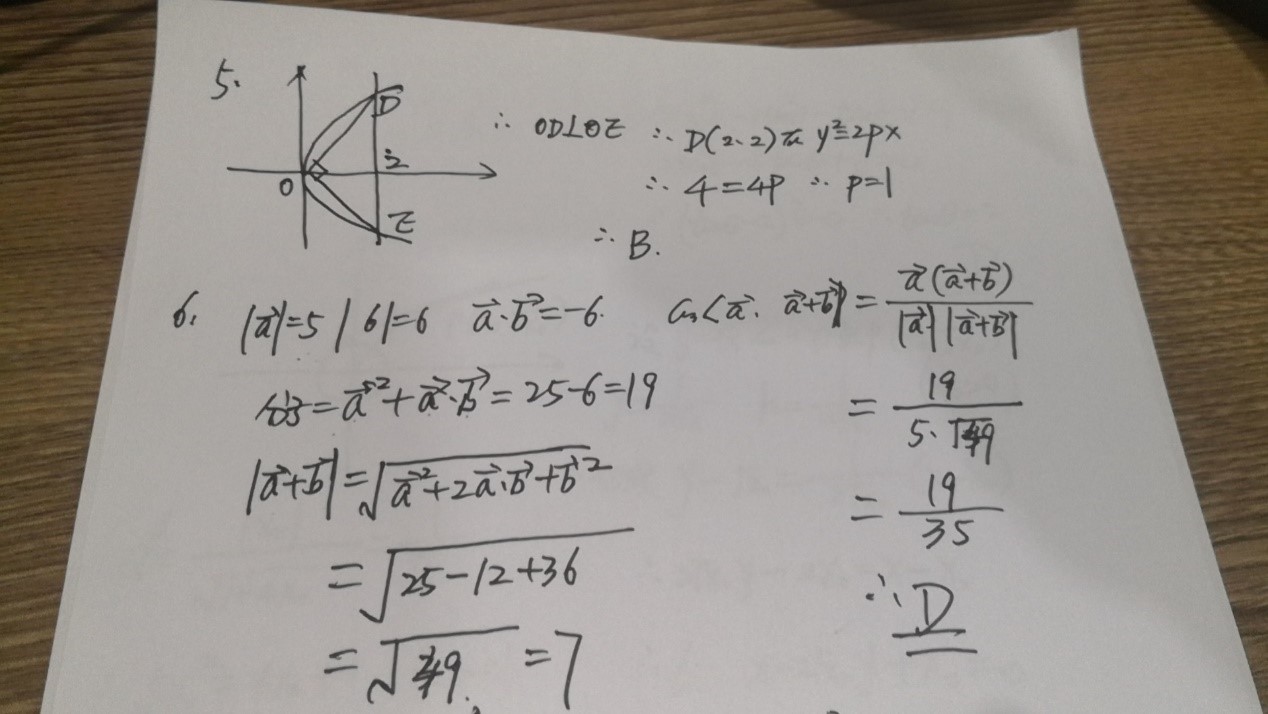 5.
D
2
O
E
∴ OD⊥OE ∴ D(2、2) 在 y²=2px
∴ 4=4p ∴ p=1
∴ B.
6. |a⃗|=5 |b|=6 a⃗·b⃗=-6 cos<a⃗、a⃗+b⃗> = a⃗(a⃗+b⃗) / |a⃗||a⃗+b⃗|
分子=a⃗²+a⃗·b⃗=25-6=19
= 19 / 5·√49
|a⃗+b⃗|=√(a⃗²+2a⃗·b⃗+b⃗²)
= 19 / 35
=√(25-12+36)
∴ D
=√49 =7